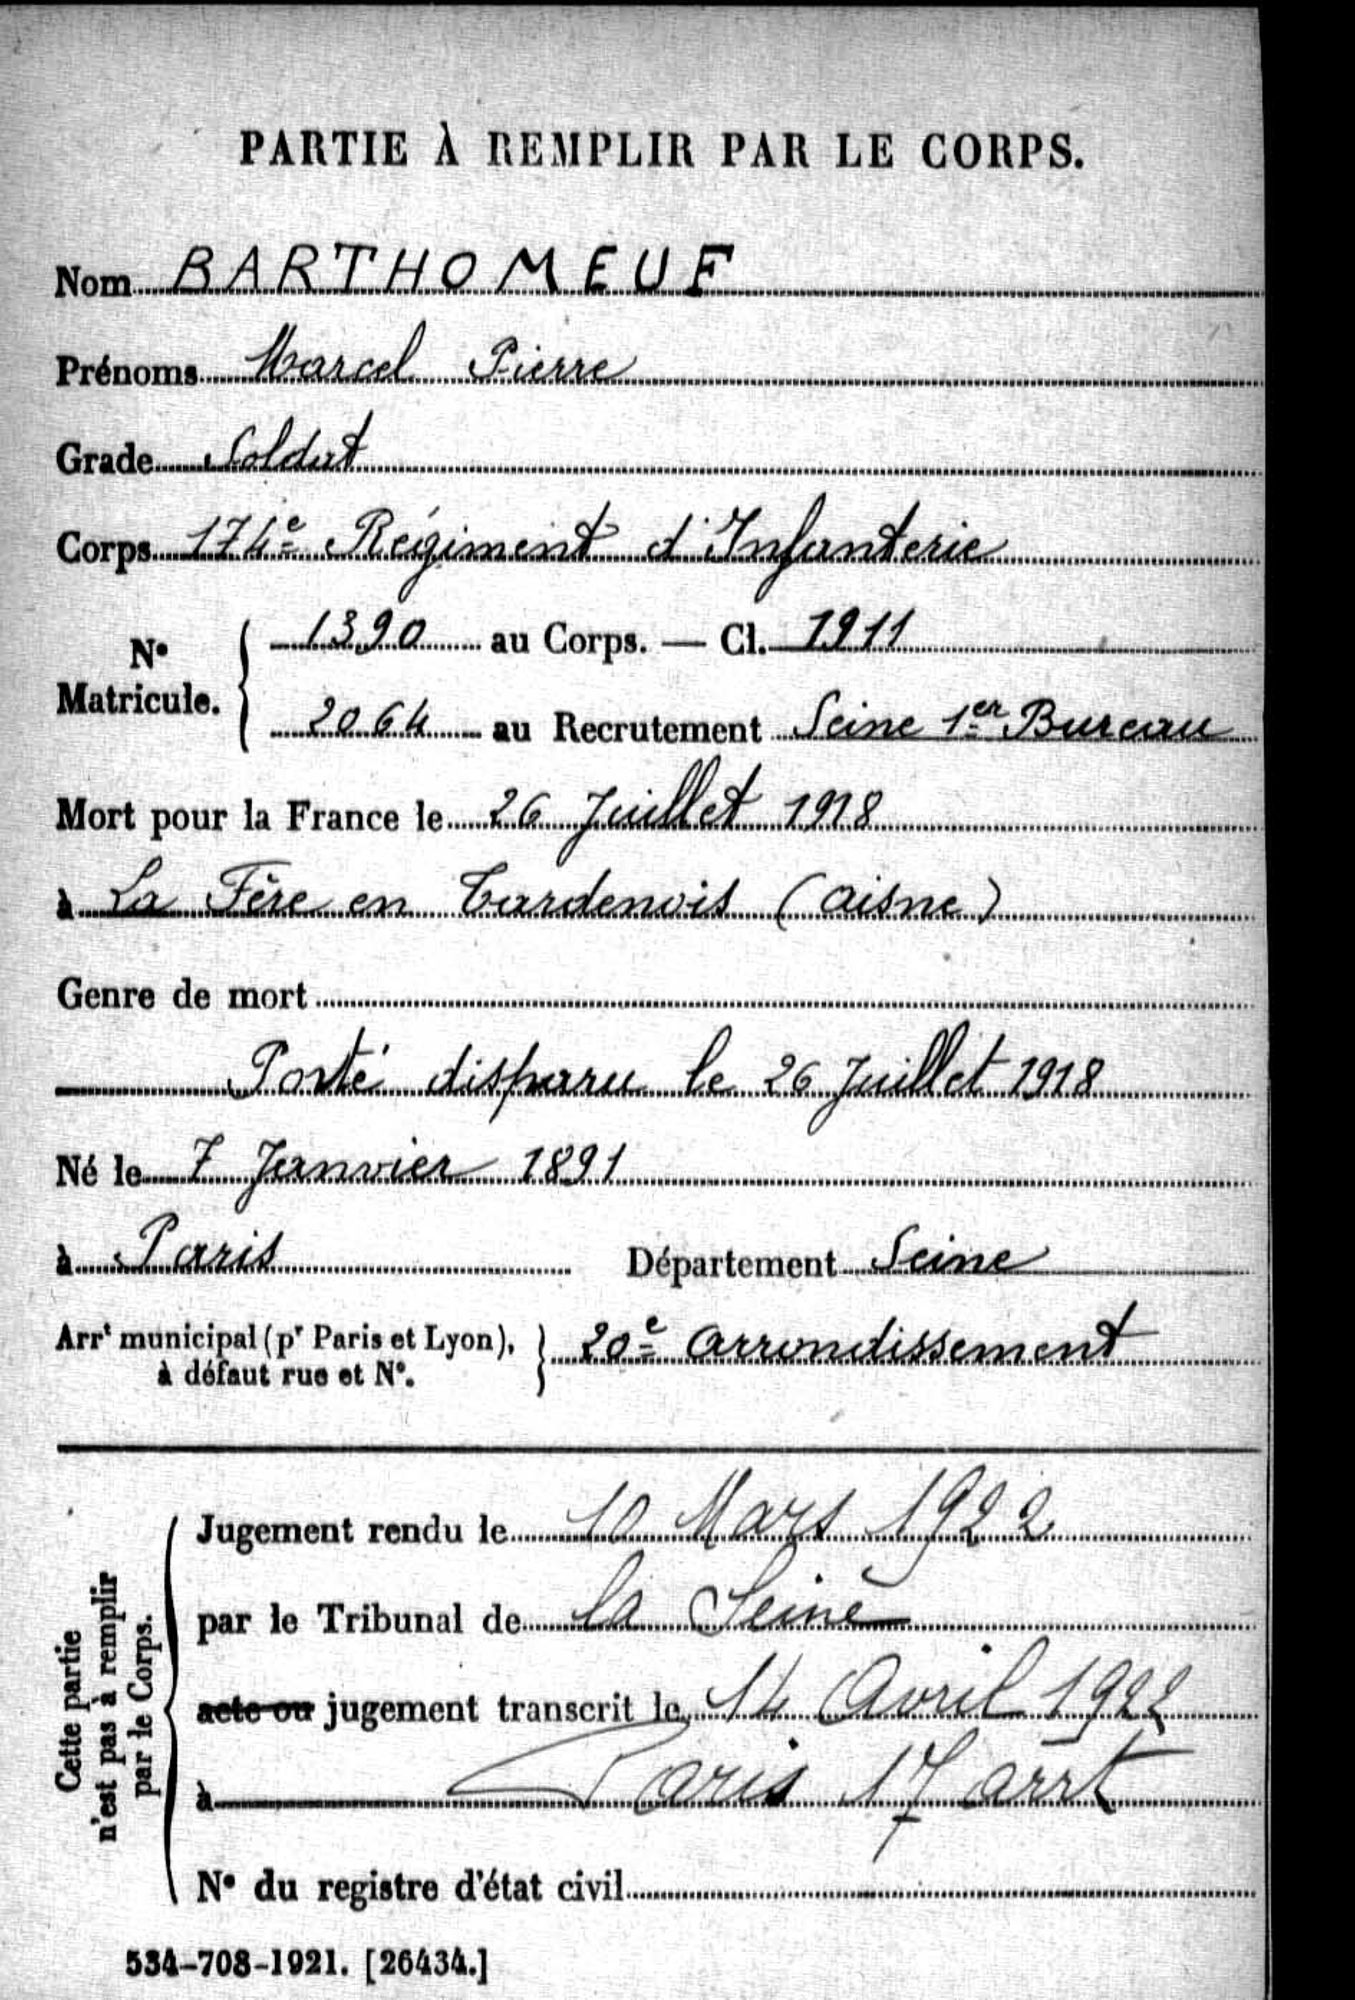 PARTIE À REMPLIR PAR LE CORPS.
Nom BARTHOMEUF
Prénoms Marcel Pierre
Grade Soldat
Corps 174e Régiment d'Infanterie
No Matricule. { 1390 au Corps. — Cl. 1911
2064 au Recrutement Seine 1er Bureau
Mort pour la France le 26 Juillet 1918
à La Fère en Tardenois (Aisne)
Genre de mort
Porté disparu le 26 Juillet 1918
Né le 7 Janvier 1891
à Paris Département Seine
Arrt municipal (pr Paris et Lyon), à défaut rue et No. } 20e Arrondissement
Cette partie n'est pas à remplir par le Corps.
Jugement rendu le 10 Mars 1922
par le Tribunal de la Seine
acte ou jugement transcrit le 14 Avril 1922
à Paris 17 arrt
No du registre d'état civil
534-708-1921. [26434.]